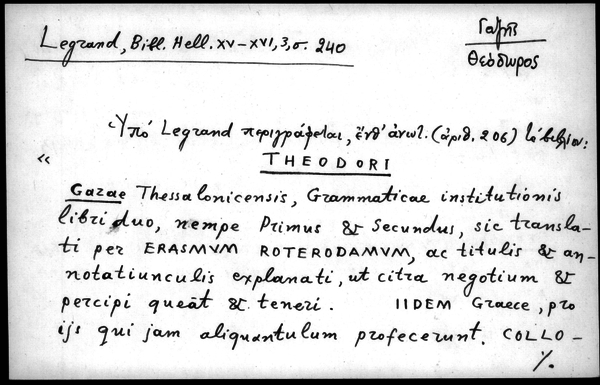 Legrand, Bibl. Hell. XV–XVI, 3, σ. 240
Γαζῆς
Θεόδωρος
Ὑπό Legrand περιγράφεται, ἔνθ' ἀνωτ. (ἀριθ. 206) τό βιβλίον:
« THEODORI
Gazae Thessalonicensis, Grammaticae institutionis
libri duo, nempe Primus & Secundus, sic transla-
ti per ERASMVM ROTERODAMVM, ac titulis & an-
notatiunculis explanati, ut citra negotium &
percipi queāt & teneri. IIDEM Graece, pro
ijs qui jam aliquantulum profecerunt. COLLO-
·/.